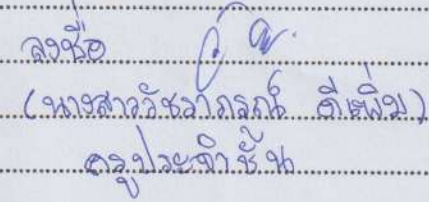 ลงชื่อ
(นางสาววัชราภรณ์ ดีเพิ่ม)
ครูประจำชั้น